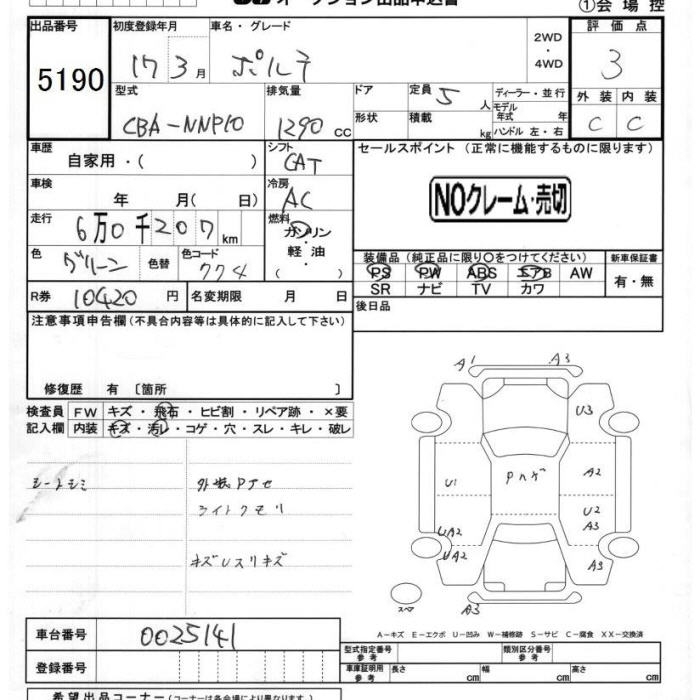 オークション出品申込書
①会場控
出品番号 初度登録年月 車名・グレード 2WD・4WD 評価点
5190 17 3月 ポルテ 3
型式 排気量 ドア 定員 5人 ディーラー・並行 外装 内装
CBA-NNP10 1290 CC 形状 積載 kg モデル年式 年 ハンドル 左・右 C C
車歴 自家用・( ) シフト CAT セールスポイント (正常に機能するものに限ります)
車検 年 月( 日) 冷房 AC NOクレーム・売切
走行 6万0千207km 燃料 ガソリン・軽油・( )
色 グリーン 色替 色コード 774 装備品 (純正品に限り○をつけてください) 新車保証書
PS PW ABS エアB AW 有・無
SR ナビ TV カワ
R券 10420円 名変期限 月 日 後日品
注意事項申告欄(不具合内容等は具体的に記入して下さい)
修復歴 有 〔箇所 〕
検査員 FW キズ・飛石・ヒビ割・リペア跡・×要
記入欄 内装 キズ・汚レ・コゲ・穴・スレ・キレ・破レ
シートシミ
ライトクモリ
A1 A3
U3
U1 A2
U2
UA2 A3
UA2 A3
スペア A3
A-キズ E-エクボ U-凹み W-補修跡 S-サビ C-腐食 XX-交換済
車台番号 0025141 型式指定番号 参考 類別区分番号 参考
登録番号 車庫証明用 参考 長さ cm 幅 cm 高さ cm
希望出品コーナー(コーナーは各会場により異なります。)